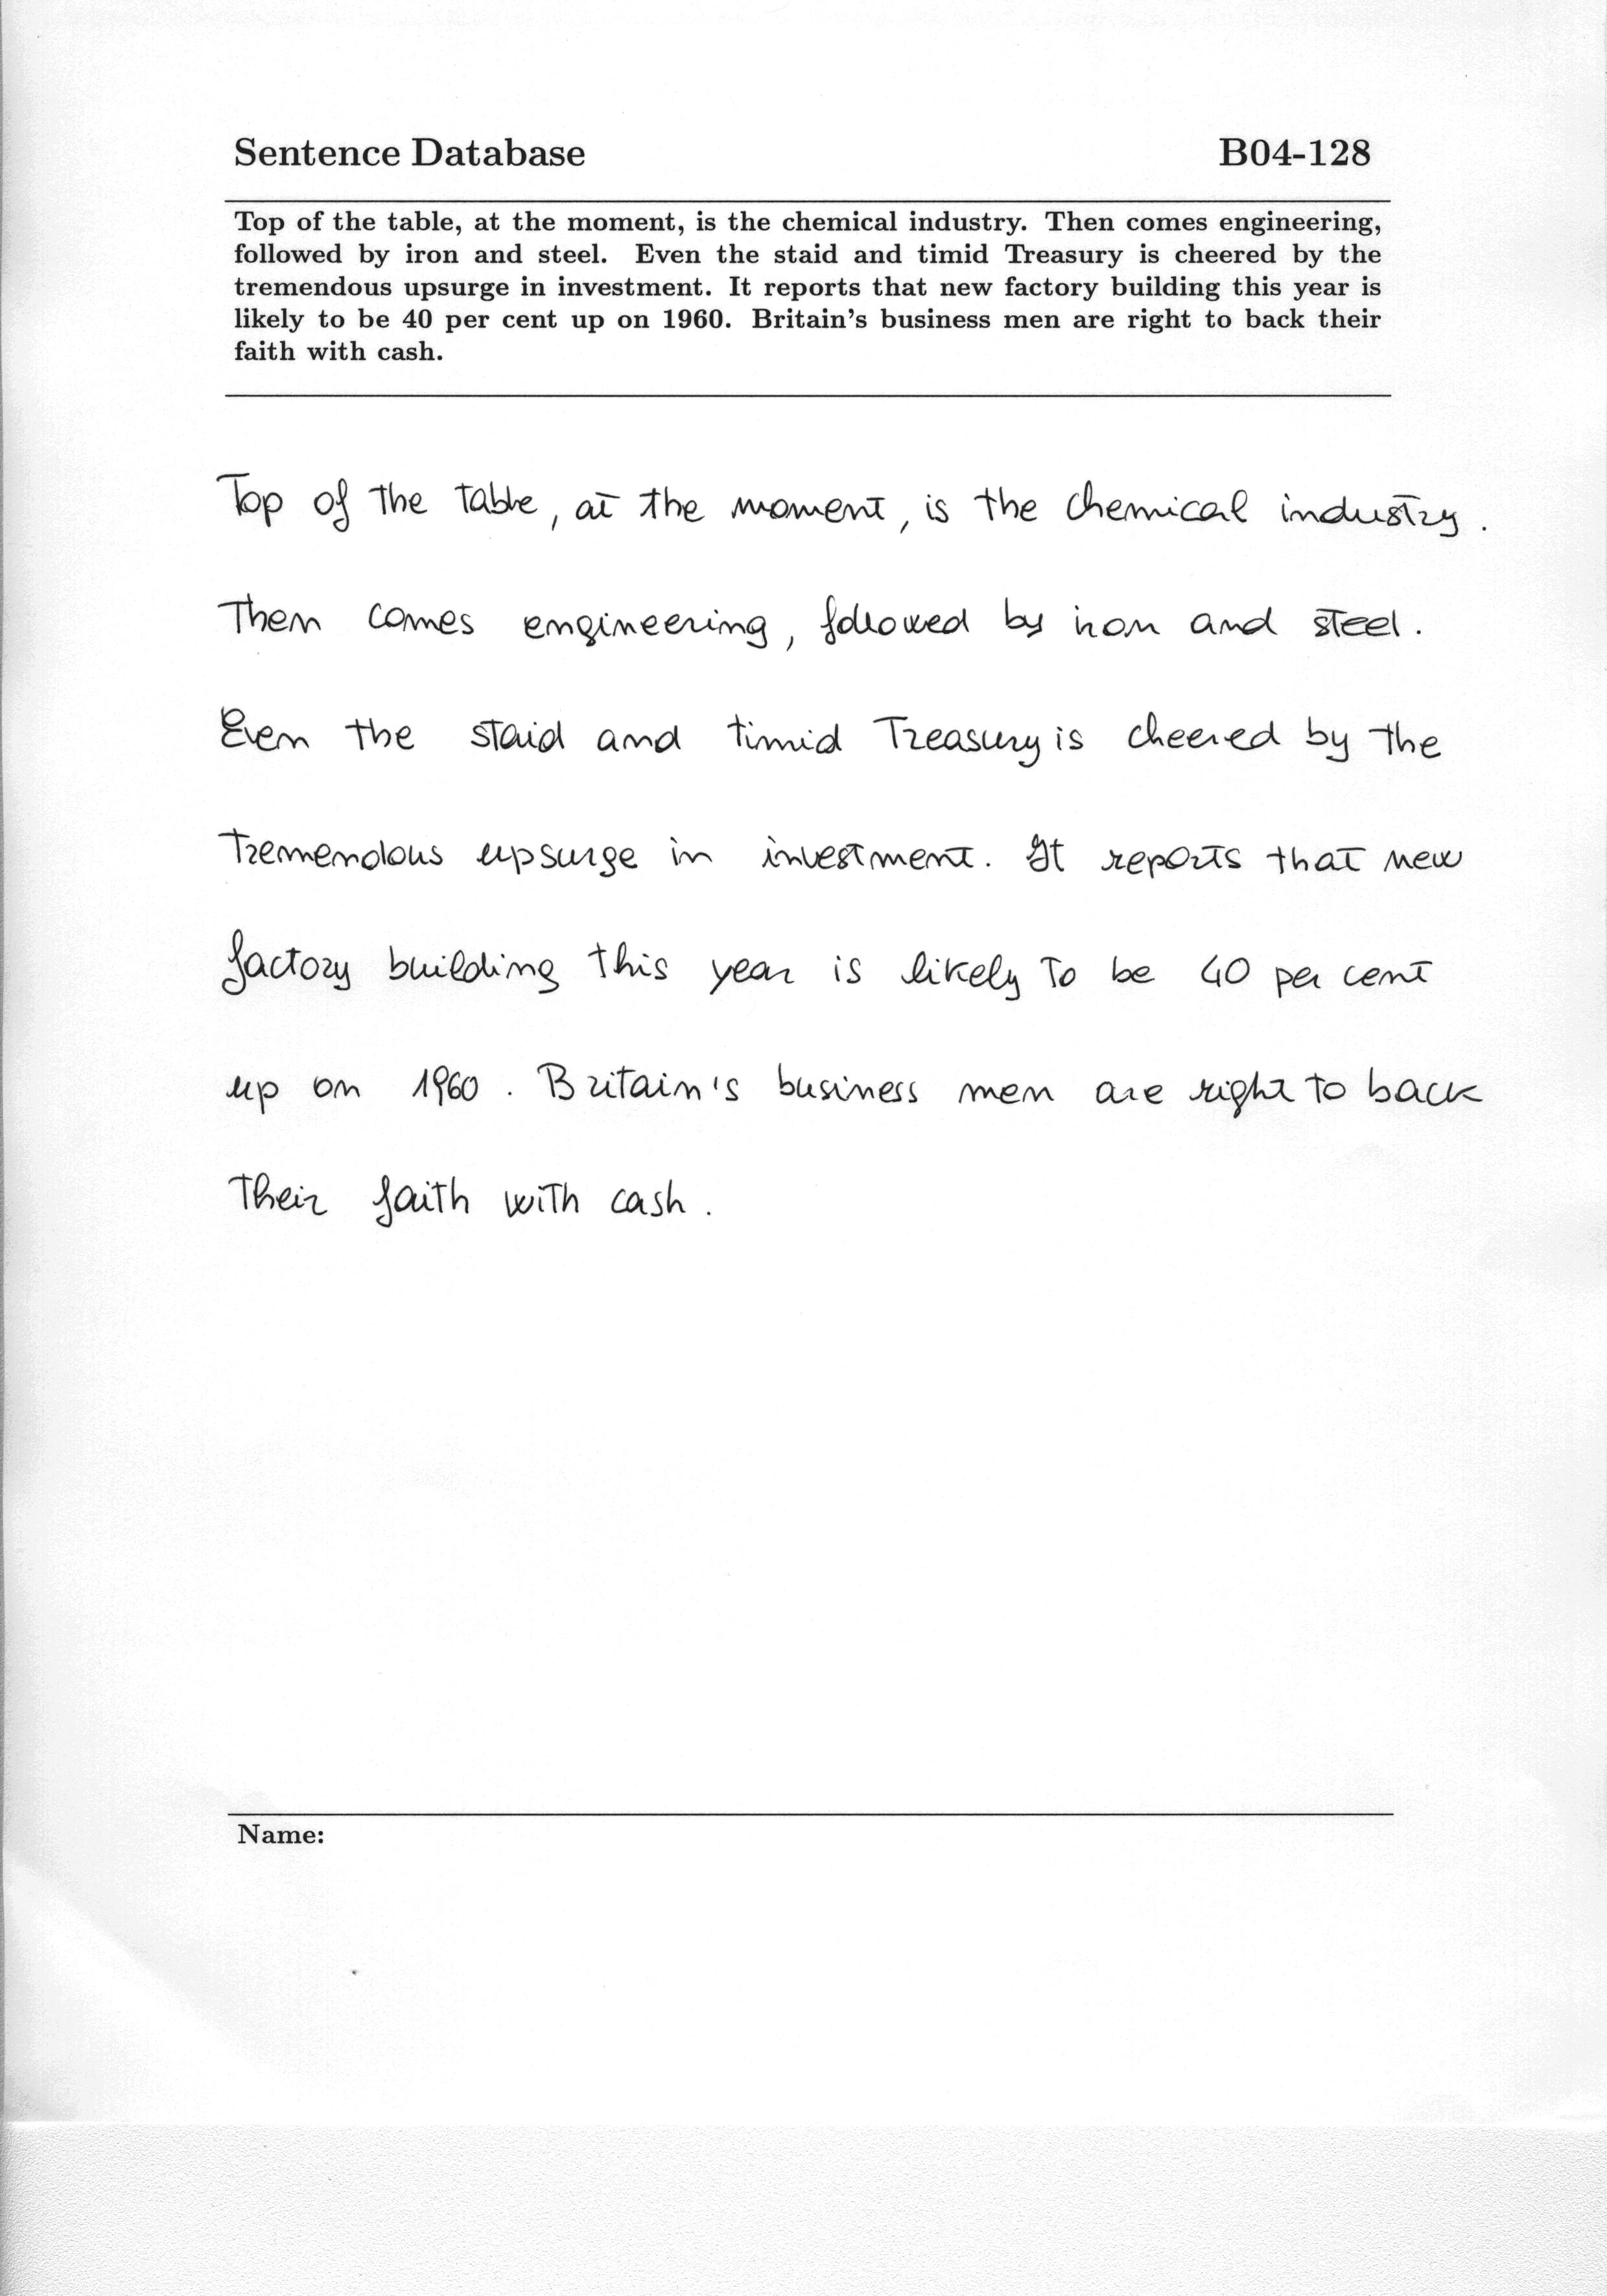 Sentence Database B04-128
Top of the table, at the moment, is the chemical industry. Then comes engineering,
followed by iron and steel. Even the staid and timid Treasury is cheered by the
tremendous upsurge in investment. It reports that new factory building this year is
likely to be 40 per cent up on 1960. Britain's business men are right to back their
faith with cash.
Top of the table, at the moment, is the chemical industry.
Then comes engineering, followed by iron and steel.
Even the staid and timid Treasury is cheered by the
tremendous upsurge in investment. It reports that new
factory building this year is likely to be 40 per cent
up on 1960. Britain's business men are right to back
their faith with cash.
Name: